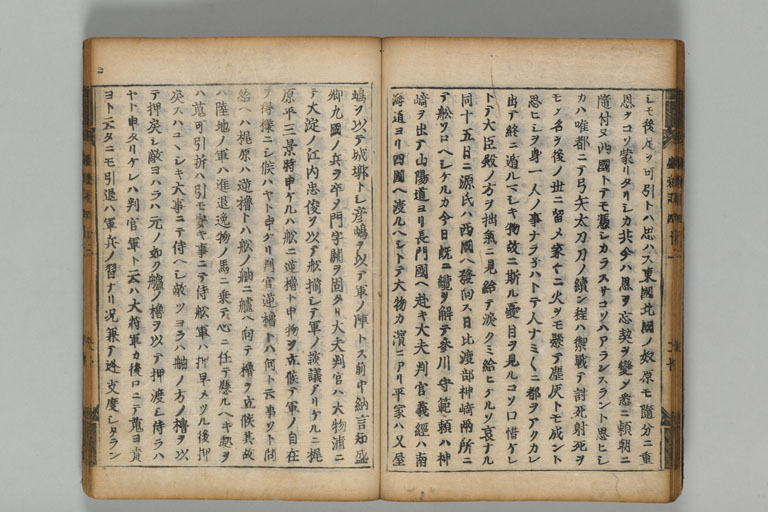 シモ後足ヲ可引トハ思ハス東國北國ノ奴原モ隨分ニ重
恩ヲコソ蒙リタリシカ共今ハ恩ヲ忘契ヲ變シ悉ニ頼朝ニ
隨付ヌ西國トテモ憑シカラスサコソハアランスラント思ヒシ
カハ唯都ニテ弓矢太刀刀ノ續ン程ハ禦戰テ討死射死ヲ
モシ名ヲ後ノ世ニ留メ家々ニ火ヲモ懸テ塵灰トモ成ント
思ヒシヲ身一人ノ事ナラネハトテ人ナミ〱ニ都ヲアクカレ
出テ終ニ遁ルマシキ物故ニ斯ル憂目ヲ見ルコソ口惜ケレ
トテ大臣殿ノ方ヲ拙氣ニ見給テ淚クミ給ヒケルソ哀ナル
同十五日ニ源氏ハ西國ヘ發向ス日比渡部神崎兩所ニ
テ舩ソロヘシケルカ今日既ニ纜ヲ解テ參川守範頼ハ神
崎ヲ出テ山陽道ヨリ長門國ヘ赴キ大夫判官義經ハ南
海道ヨリ四國ヘ渡ルヘシトテ大物カ濱ニアリ平家ハ又屋
嶋ヲ以テ城墎トシ彦嶋ヲ以テ軍ノ陣トス前中納言知盛
卿九國ノ兵ヲ卒メ門字關ヲ固タリ大夫判官ハ大物浦ニ
テ大淀ノ江内忠俊ヲ以テ舩揃シテ軍ノ談議アリケルニ梶
原平三景時申ケルハ舩ニ逆櫓ト申物ヲ立候テ軍ノ自在
ヲ得樣ニシ候ハヤト申ケリ判官逆櫓トハ何ト云事ソト問
給ヘハ梶原ハ逆櫓トハ舩ノ舳ニ艫ヘ向テ櫓ヲ立候其故
ハ陸地ノ軍ハ進退逸物ノ馬ニ乗テ心ニ任テ懸ルヘキ契ヲ
ハ蒐可引折ハ引モ安キ事ニテ侍舩軍ハ押早メツル後押
戾スハユヽシキ大事ニテ侍ヘシ敵ツヨラハ舳ノ方ノ櫓ヲ以
テ押戾シ敵ヨハラハ元ノ如ク艫ノ櫓ヲ以テ押渡シ侍ラハ
ヤト申タリケレハ判官軍ト云ハ大將軍カ後ロニテ蒐ヨ責
ヨト云タニモ引退ハ軍兵ノ習ナリ況兼テ迯支度シタラン